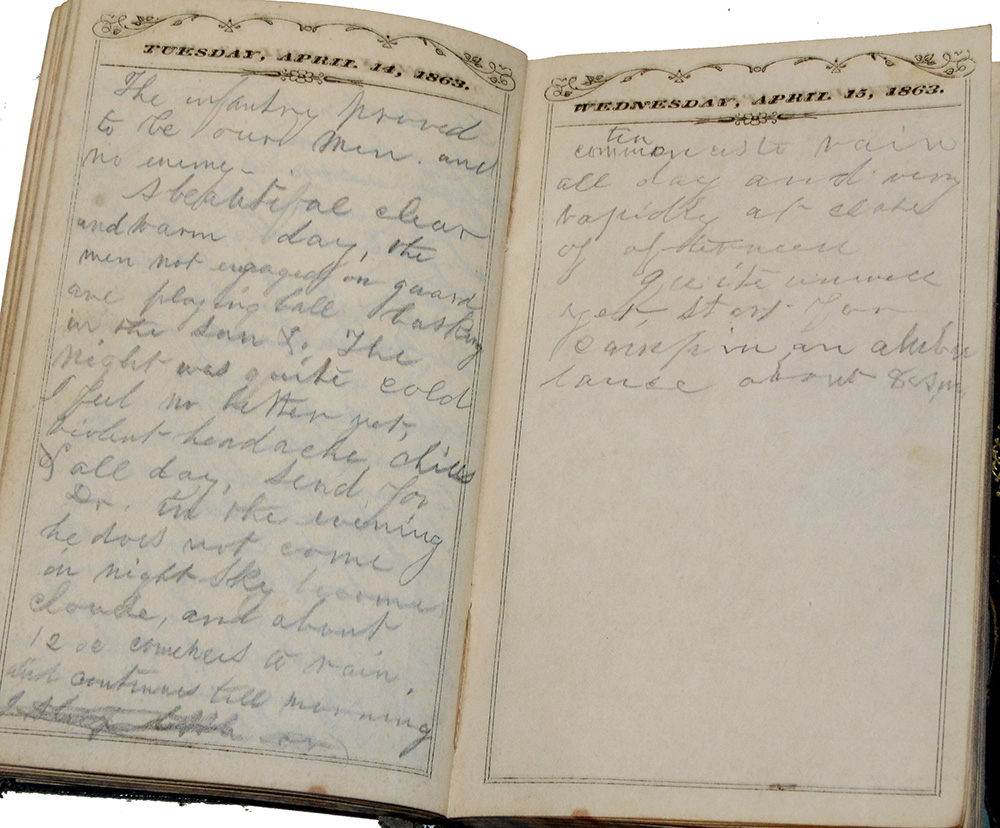 TUESDAY, APRIL 14, 1863.
The infantry proved
to be our men and
no enemy.
A beautifal clear
and warm day, the
men not engaged on guard
are playing ball basking
in the sun &c. The
night was quite cold
I feel no better yet,
violent headache, chills
& all day, send for
Dr. in the evening
he does not come
in night sky become
cloude, and about
12 oc comences to rain,
and continues till morning
WEDNESDAY, APRIL 15, 1863.
to rain
all day and very
rapidly at close
of afternoon
quite unwell
yet, start for
camp in an ambu
lance about